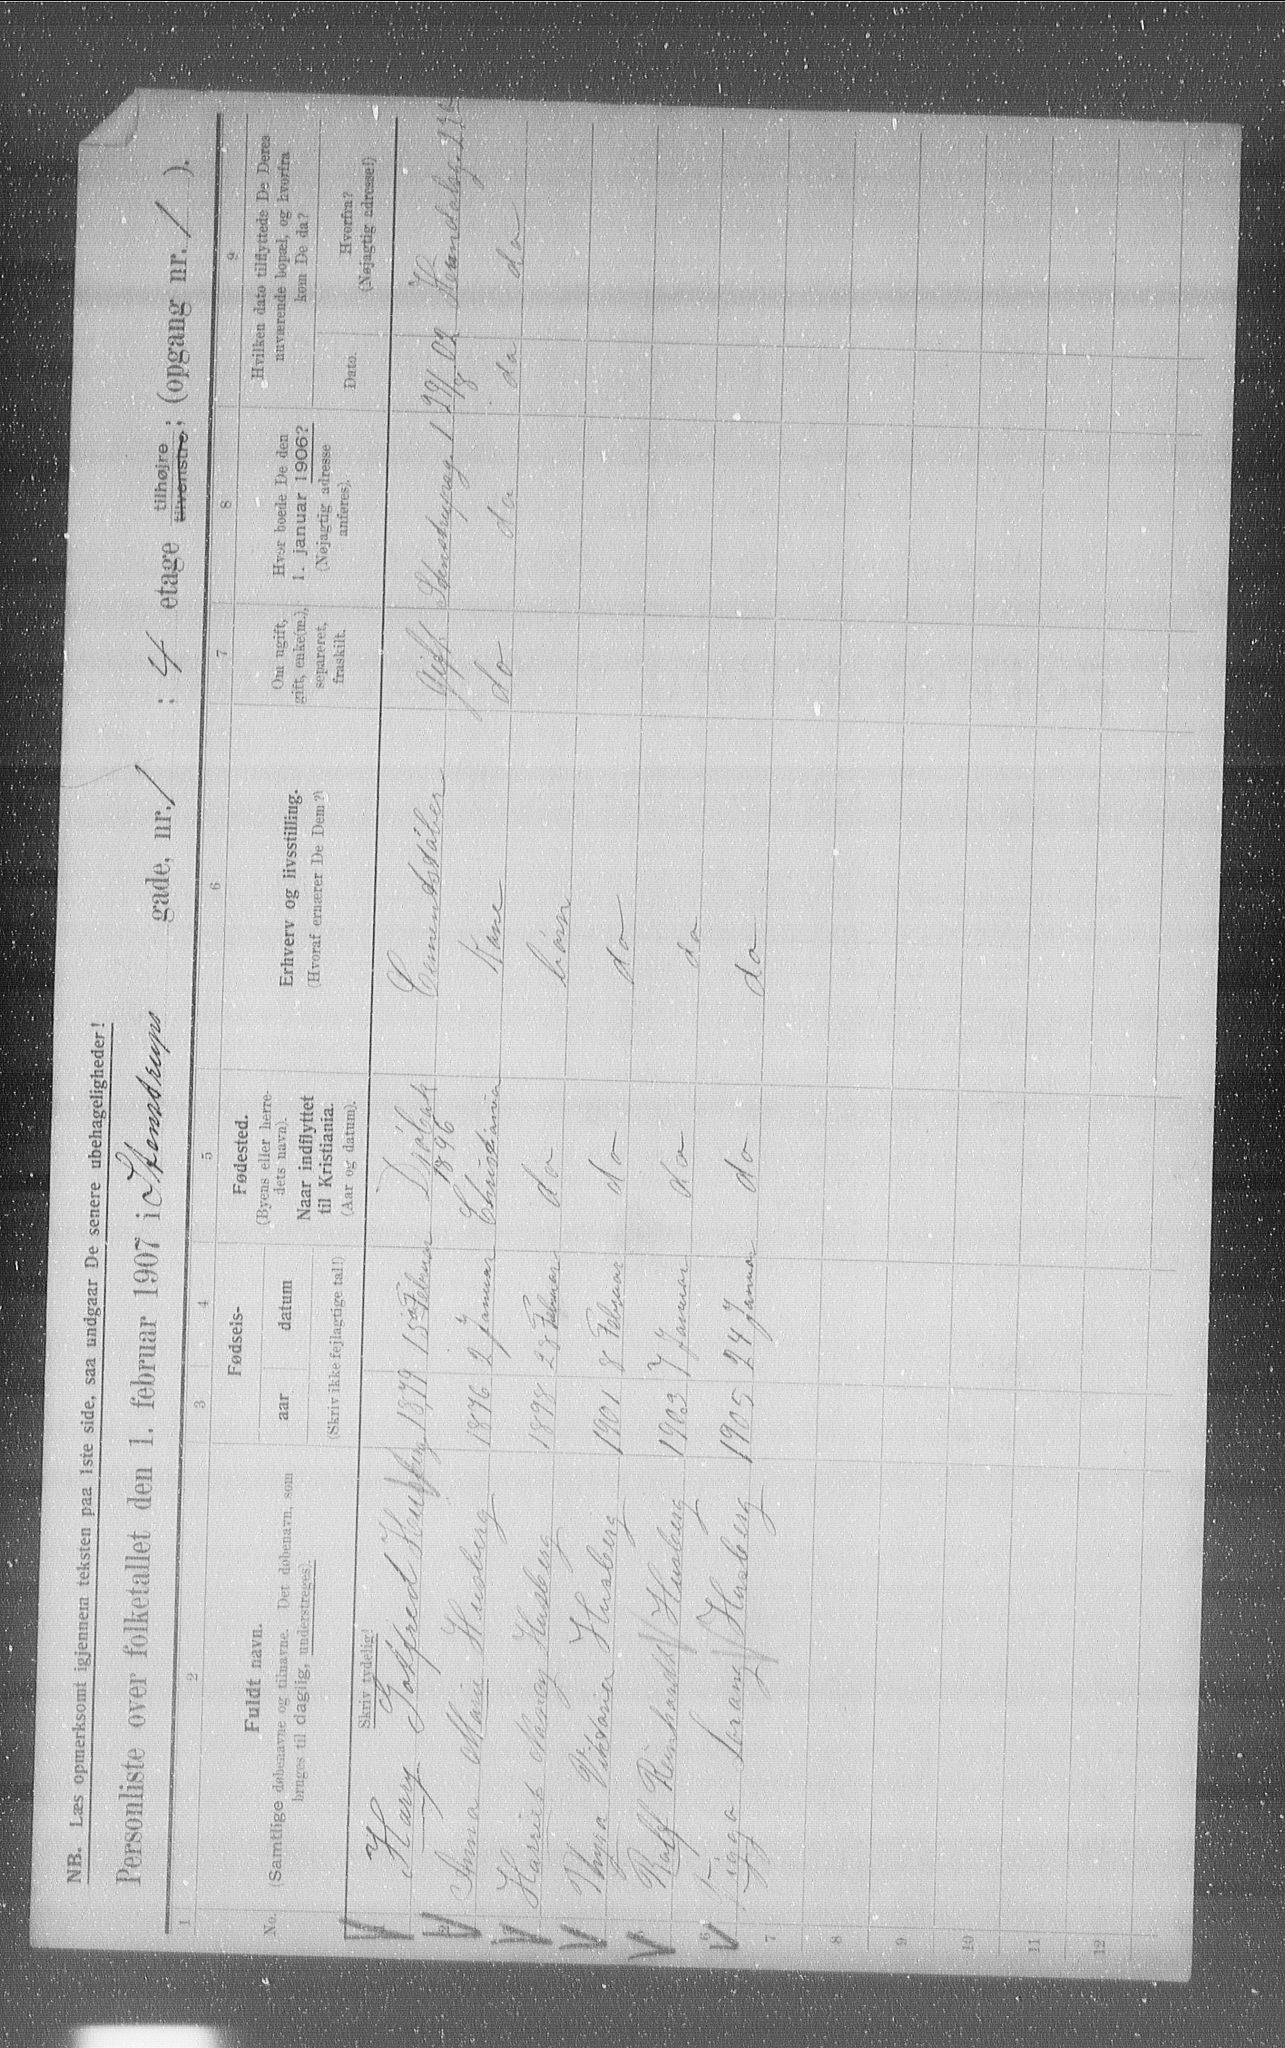 NB. Læs opmerksomt igjennem teksten paa 1ste side, saa undgaar De senere ubehageligheder!
Personliste over folketallet den 1. februar 1907 i Stenstrups gade, nr. 1 ; 4 etage tilhøjre tilvenstre; (opgang nr. 1 ).
1 2 3 4 5 6 7 8 9
No. Fuldt navn. (Samtlige døbenavne og tilnavne. Det døbenavn, som bruges til daglig, understreges).
Fødsels- aar datum
(Skriv ikke fejlagtige tal!)
Fødested. (Byens eller herredets navn). Naar indflyttet til Kristiania. (Aar og datum).
Erhverv og livsstilling. (Hvoraf ernærer De Dem?)
Om ugift, gift, enke(m.), separeret, fraskilt.
Hvor boede De den 1. januar 1906? (Nøjagtig adresse anføres).
Hvilken dato tilflyttede De Deres nuværende bopæl, og hvorfra kom De da?
Dato. Hvorfra? (Nøjagtig adresse!)
Skriv tydelig!
1 Harry Godfred Husberg 1879 15 Februar Drøbak 1896 Cementstøber Gift Stenstrupsg. 1 29/8 02
2 Anna Marie Husberg 1876 2 Januar Christiania Kone do do do do
Harriet Husberg 1898 28 Februar do barn
Thyra Viktoria Husberg 1901 8 Februar do do
Ralf Reinhardt Husberg 1903 7 Januar do do
6 Viggo Husberg 1905 24 Januar do do
7
8
9
10
11
12